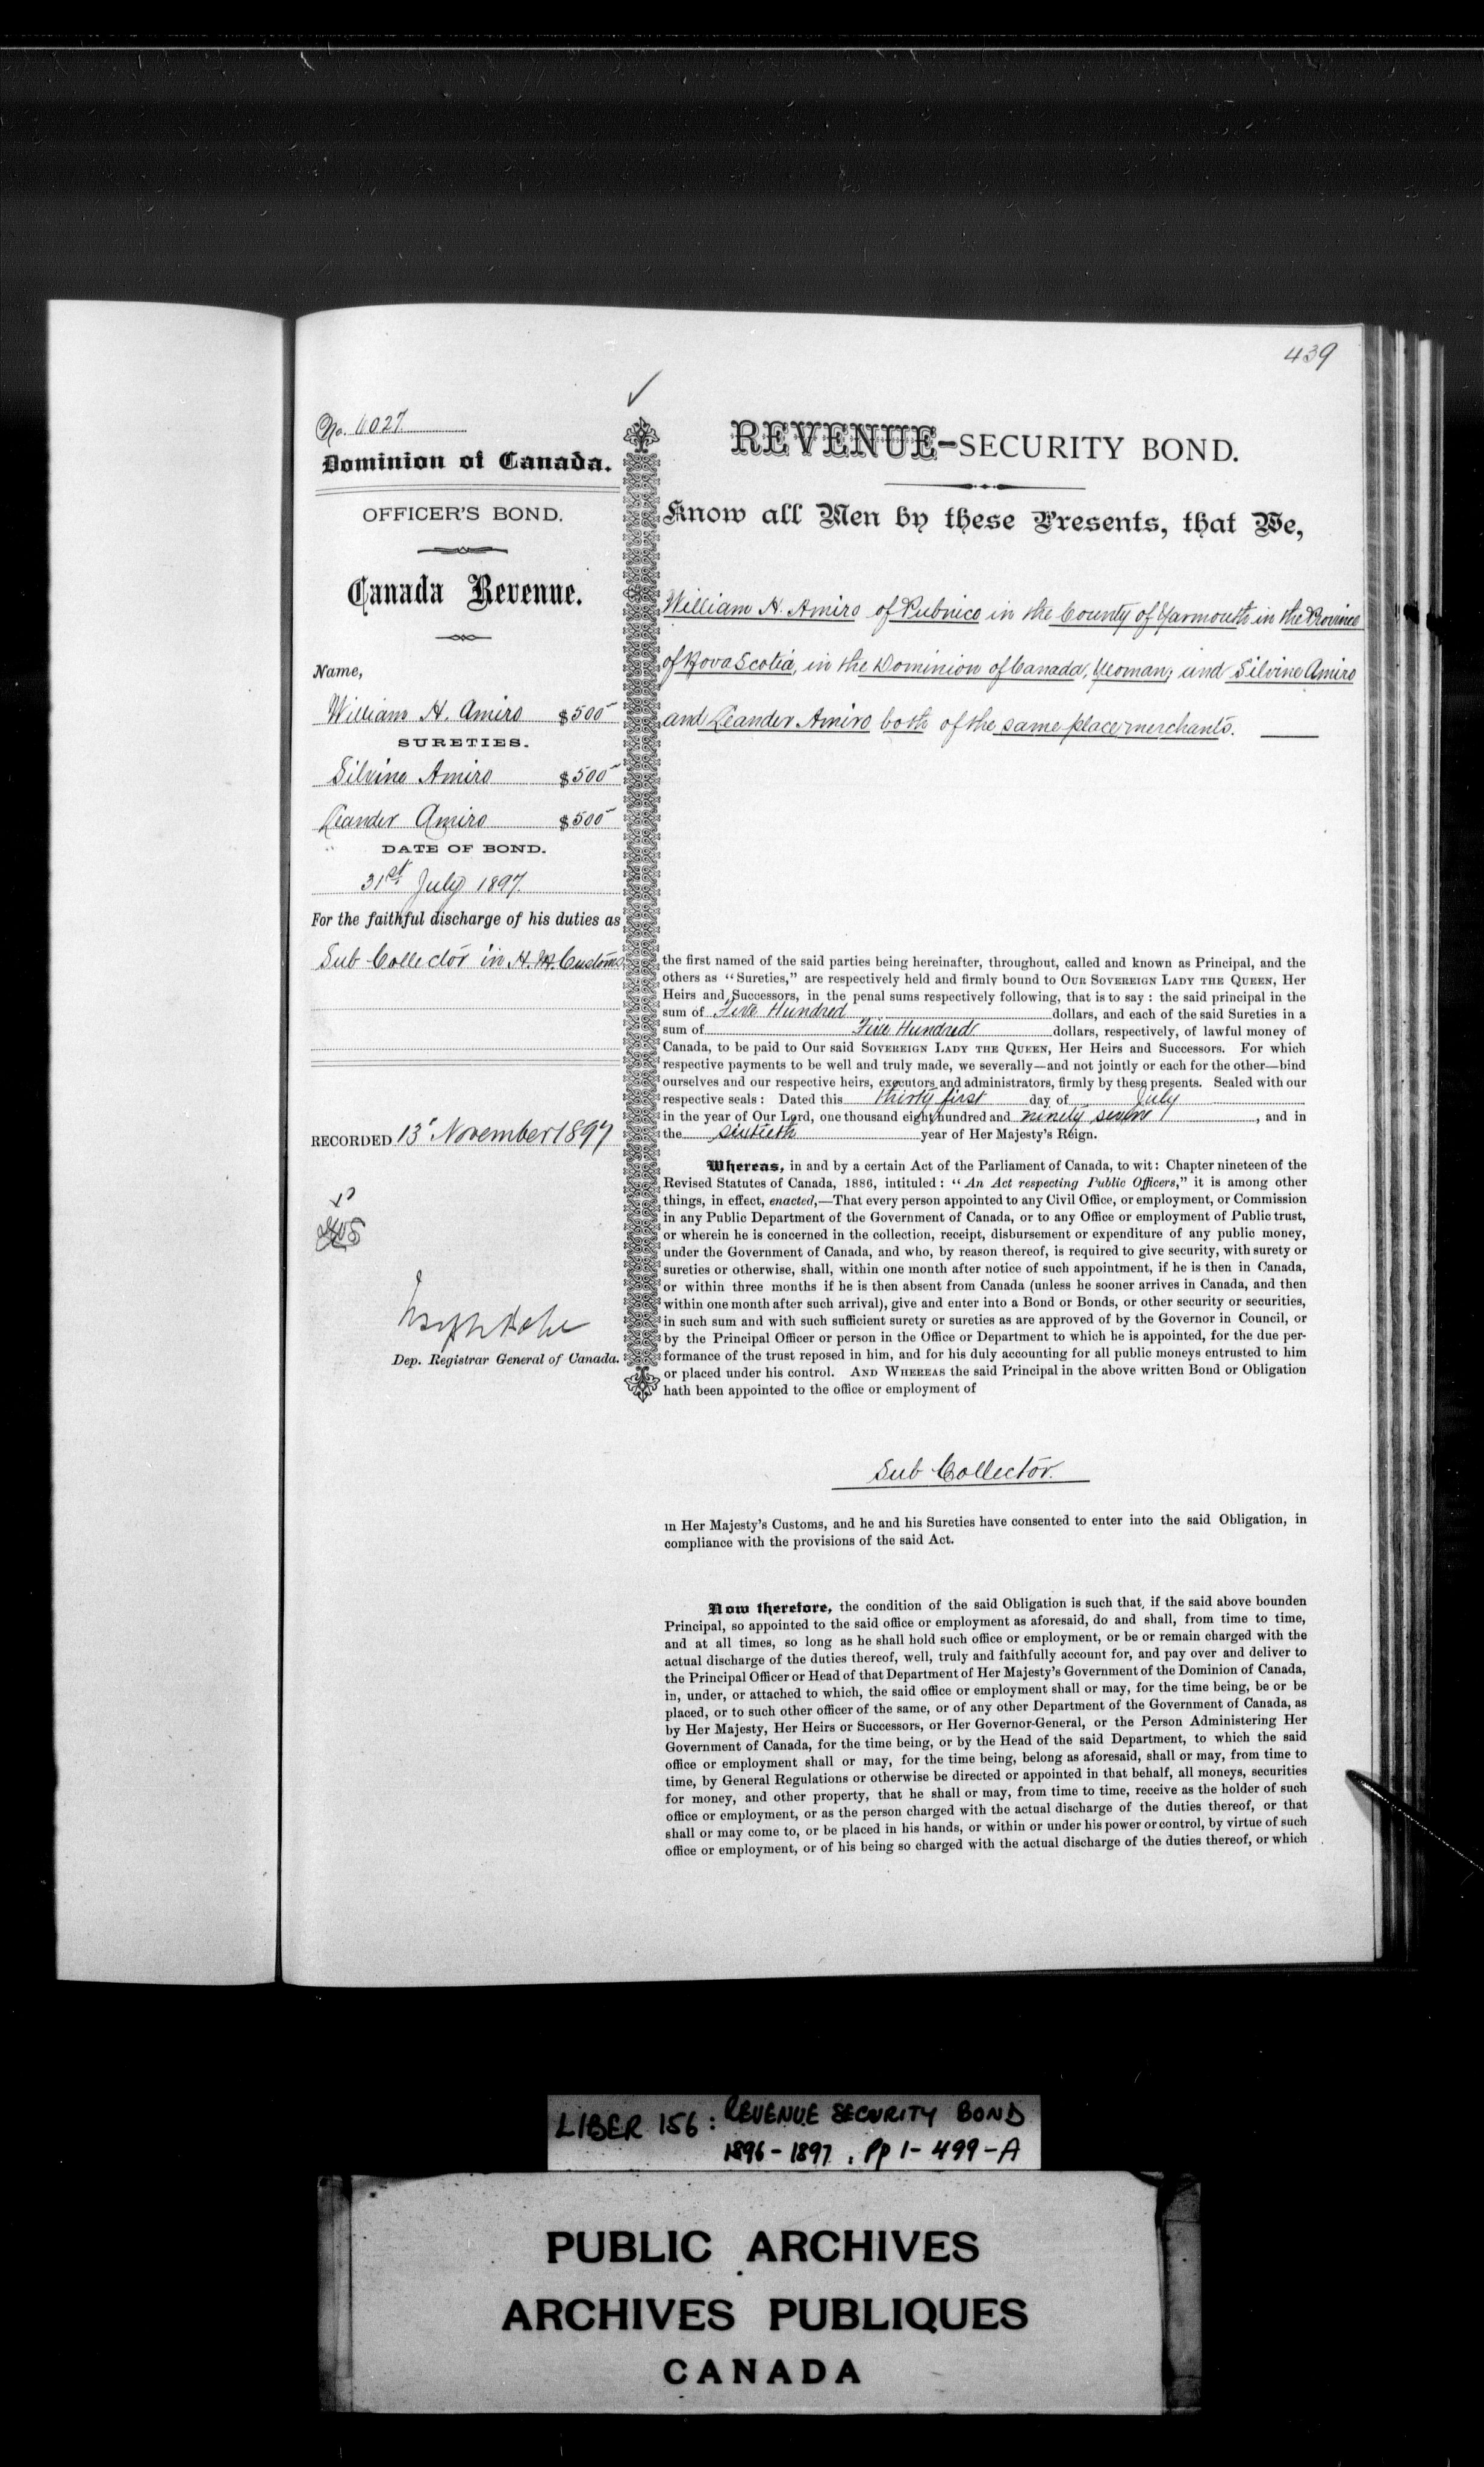 439
No. 6027
Dominion of Canada.
OFFICER'S BOND.
Canada Revenue.
Name,
William H. Amiro $500
SURETIES.
Silvine Amiro $500
Leander Amiro $500
DATE OF BOND.
31st July 1897.
For the faithful discharge of his duties as
Sub Collector in H. M. Customs
RECORDED 13" November 1897
Dep. Registrar General of Canada.
REVENUE-SECURITY BOND.
Know all Men by these Presents, that We,
William H. Amiro of Pubnico in the County of Yarmouth in the Province
of Nova Scotia, in the Dominion of Canada, Yeoman; and Silvine Amiro
and Leander Amiro both of the same place merchants.
the first named of the said parties being hereinafter, throughout, called and known as Principal, and the
others as "Sureties," are respectively held and firmly bound to OUR SOVEREIGN LADY THE QUEEN, Her
Heirs and Successors, in the penal sums respectively following, that is to say : the said principal in the
sum of Five Hundred dollars, and each of the said Sureties in a
sum of Five Hundred dollars, respectively, of lawful money of
Canada, to be paid to Our said SOVEREIGN LADY THE QUEEN, Her Heirs and Successors. For which
respective payments to be well and truly made, we severally—and not jointly or each for the other—bind
ourselves and our respective heirs, executors and administrators, firmly by these presents. Sealed with our
respective seals : Dated this thirty first day of July
in the year of Our Lord, one thousand eight hundred and ninety seven, and in
the sixtieth year of Her Majesty's Reign.
Whereas, in and by a certain Act of the Parliament of Canada, to wit: Chapter nineteen of the
Revised Statutes of Canada, 1886, intituled : "An Act respecting Public Officers," it is among other
things, in effect, enacted,—That every person appointed to any Civil Office, or employment, or Commission
in any Public Department of the Government of Canada, or to any Office or employment of Public trust,
or wherein he is concerned in the collection, receipt, disbursement or expenditure of any public money,
under the Government of Canada, and who, by reason thereof, is required to give security, with surety or
sureties or otherwise, shall, within one month after notice of such appointment, if he is then in Canada,
or within three months if he is then absent from Canada (unless he sooner arrives in Canada, and then
within one month after such arrival), give and enter into a Bond or Bonds, or other security or securities,
in such sum and with such sufficient surety or sureties as are approved of by the Governor in Council, or
by the Principal Officer or person in the Office or Department to which he is appointed, for the due per-
formance of the trust reposed in him, and for his duly accounting for all public moneys entrusted to him
or placed under his control. AND WHEREAS the said Principal in the above written Bond or Obligation
hath been appointed to the office or employment of
Sub Collector.
in Her Majesty's Customs, and he and his Sureties have consented to enter into the said Obligation, in
compliance with the provisions of the said Act.
Now therefore, the condition of the said Obligation is such that, if the said above bounden
Principal, so appointed to the said office or employment as aforesaid, do and shall, from time to time,
and at all times, so long as he shall hold such office or employment, or be or remain charged with the
actual discharge of the duties thereof, well, truly and faithfully account for, and pay over and deliver to
the Principal Officer or Head of that Department of Her Majesty's Government of the Dominion of Canada,
in, under, or attached to which, the said office or employment shall or may, for the time being, be or be
placed, or to such other officer of the same, or of any other Department of the Government of Canada, as
by Her Majesty, Her Heirs or Successors, or Her Governor-General, or the Person Administering Her
Government of Canada, for the time being, or by the Head of the said Department, to which the said
office or employment shall or may, for the time being, belong as aforesaid, shall or may, from time to
time, by General Regulations or otherwise be directed or appointed in that behalf, all moneys, securities
for money, and other property, that he shall or may, from time to time, receive as the holder of such
office or employment, or as the person charged with the actual discharge of the duties thereof, or that
shall or may come to, or be placed in his hands, or within or under his power or control, by virtue of such
office or employment, or of his being so charged with the actual discharge of the duties thereof, or which
LIBER 156 : REVENUE SECURITY BOND
1896 - 1897 . Pp 1 - 499 - A
PUBLIC ARCHIVES
ARCHIVES PUBLIQUES
CANADA